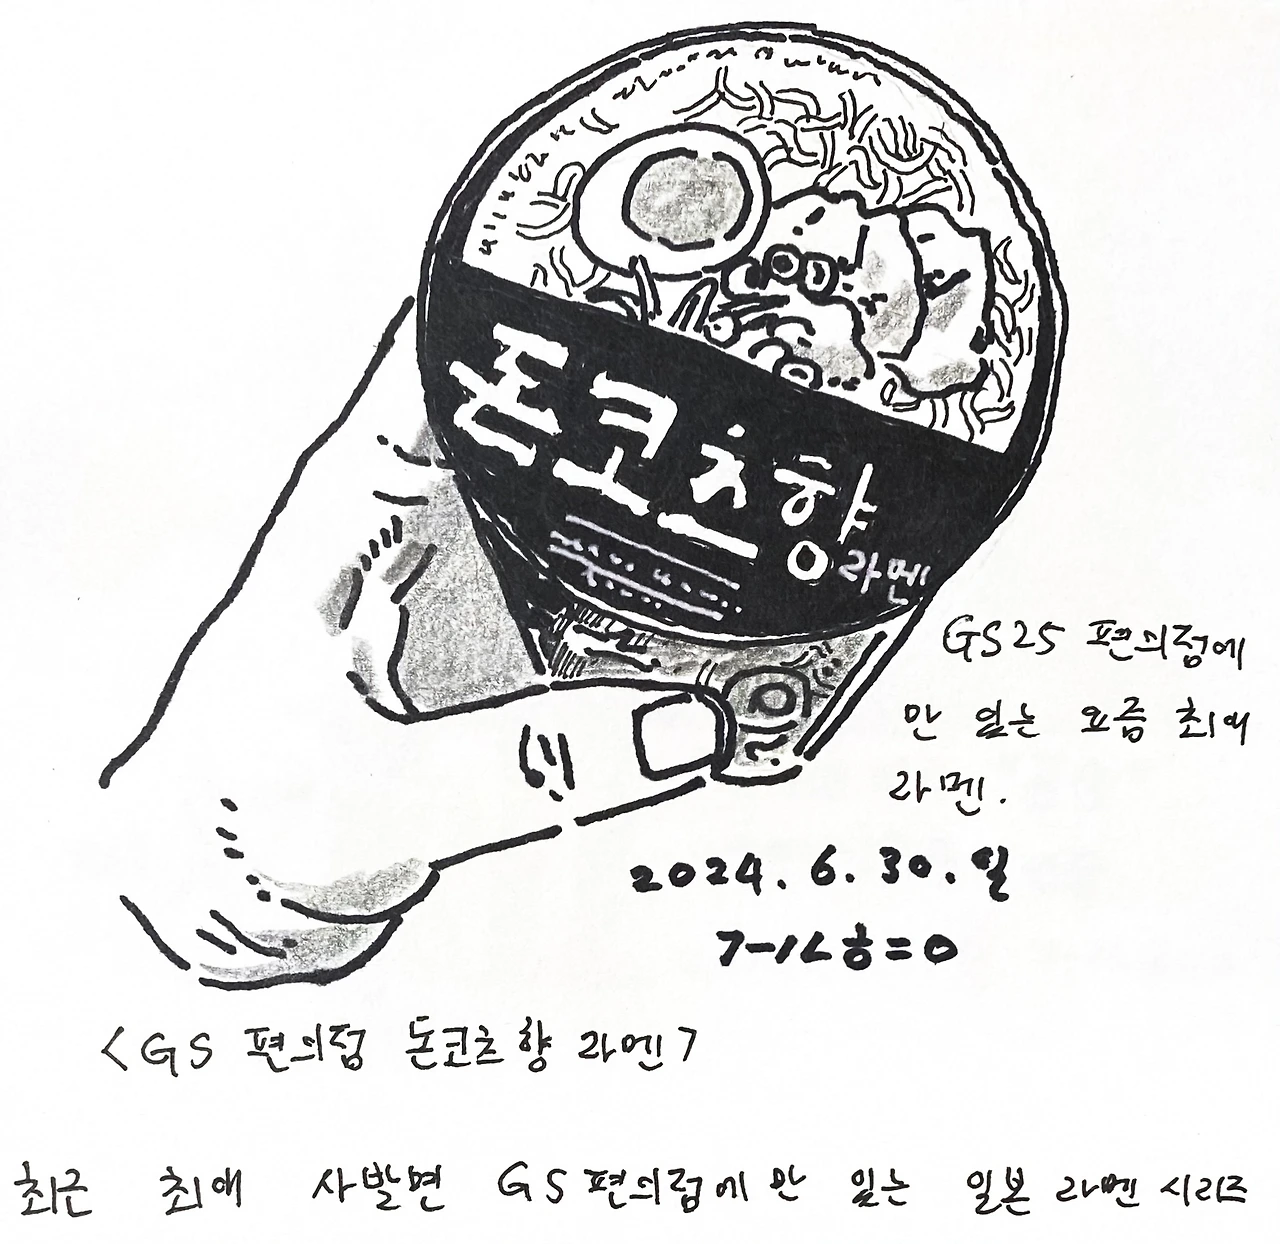 돈코츠향
라멘
GS25 편의점에
만 있는 요즘 최애
라멘.
2024. 6. 30. 일
<GS 편의점 돈코츠향 라멘>
최근 최애 사발면 GS편의점에만 있는 일본 라멘 시리즈